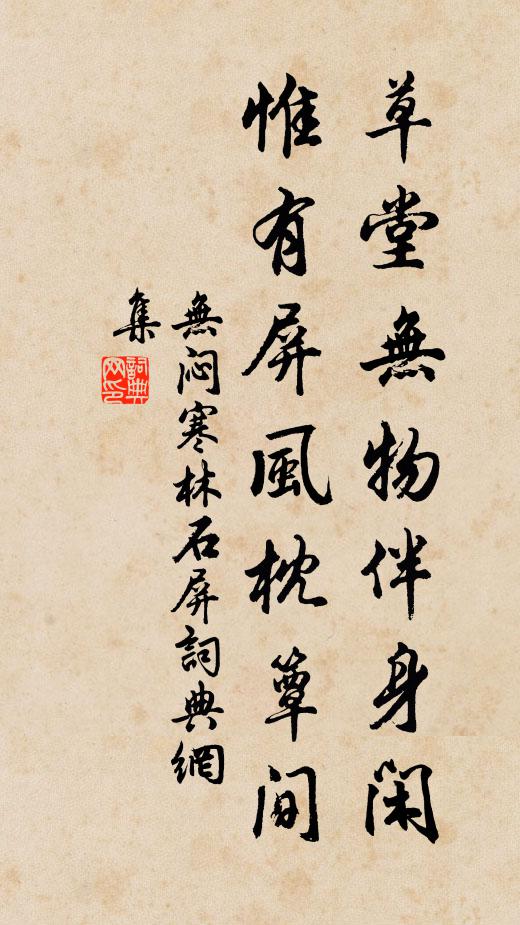 草堂無物伴身閑
惟有屏風枕簟間
無悶寒林石屏詞典網
集
詞典
网印